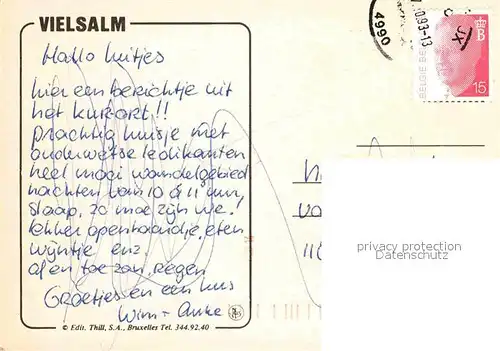 VIELSALM
Hallo luitjes
hier een berichtje uit
het kuroort!!
prachtig huisje met
ouderwetse ledikanten
heel mooi wandelgebied
nachten van 10 à 11 uur
slaap, zo moe zijn we!
lekker openhaardje, eten
wijntje enz.
af en toe zon, regen
Groetjes en een kus
Wim + Anke
© Edit. Thill, S.A., Bruxelles Tel. 344.92.40
4990
0.93-13
UX
B
BELGIE BE
15
privacy protection
Datenschutz